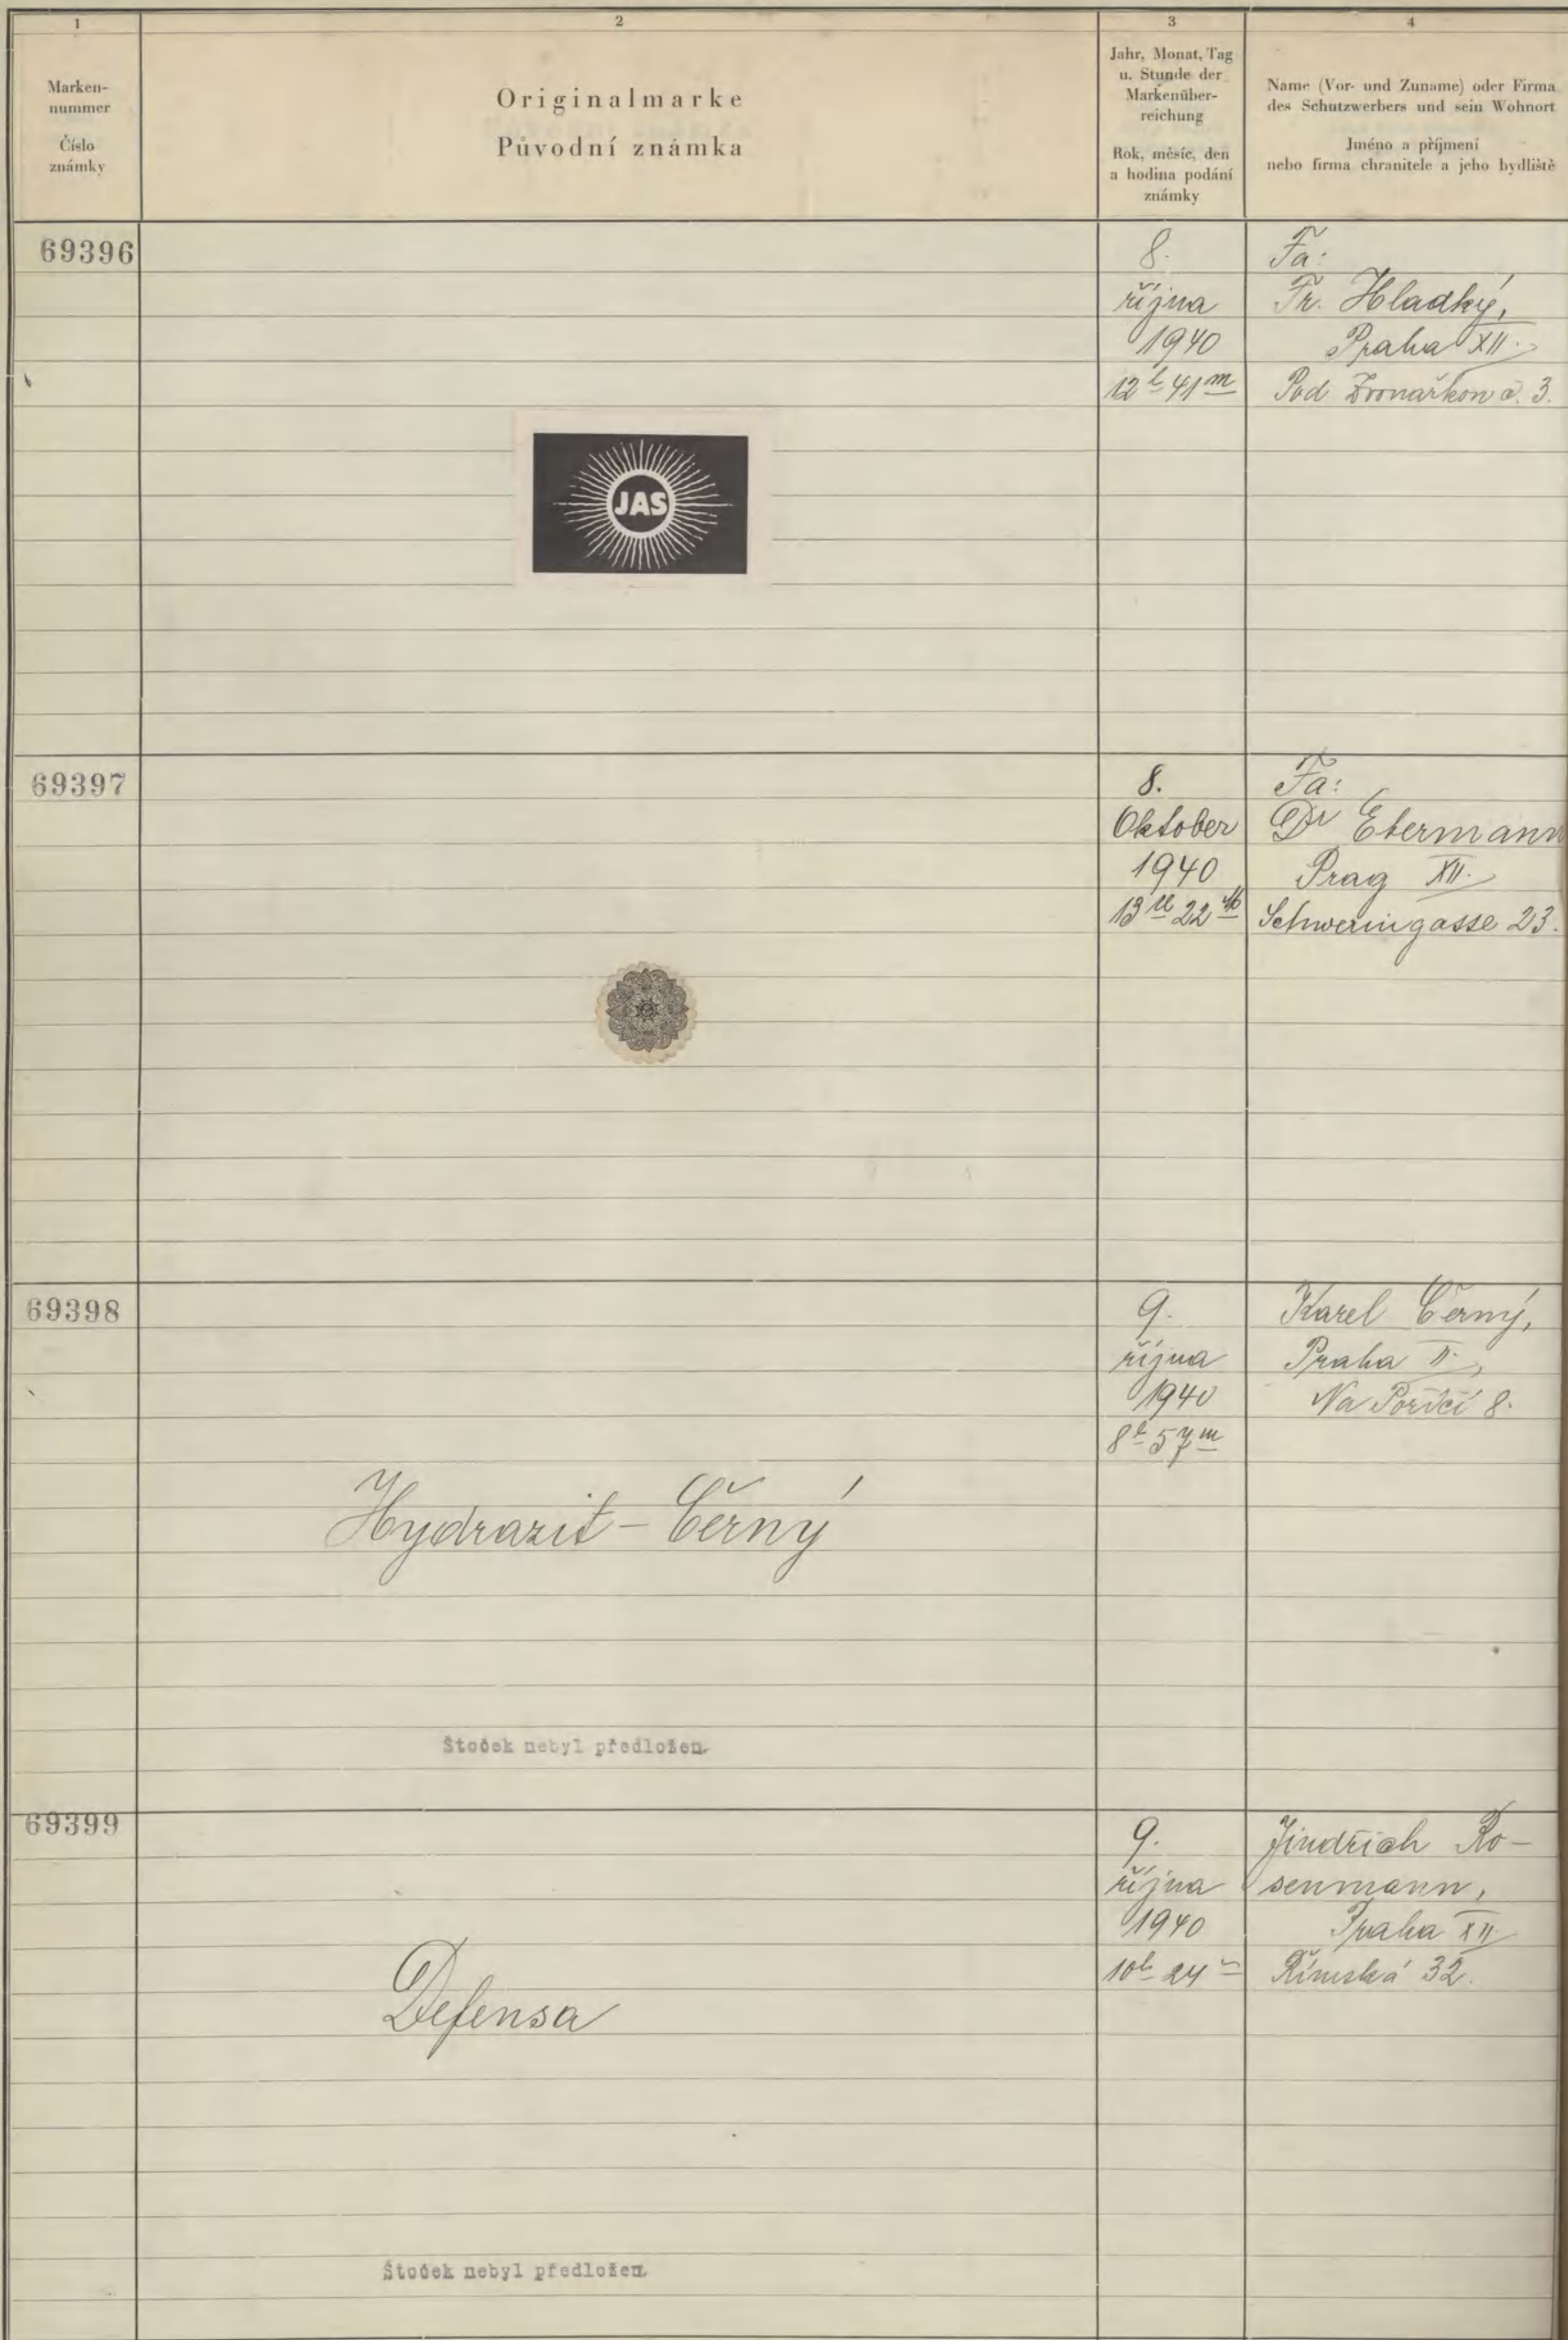 1
2
3
4
Marken-
nummer
Číslo
známky
Originalmarke
Původní známka
Jahr, Monat, Tag
u. Stunde der
Markenüber-
reichung
Rok, měsíc, den
a hodina podání
známky
Name (Vor- und Zuname) oder Firma
des Schutzwerbers und sein Wohnort
Jméno a příjmení
nebo firma chranitele a jeho bydliště
69396
JAS
8.
října
1940
12 h 41 m
Fa:
Fr. Hladký,
Praha XII.
Pod Zvonařkou č. 3.
69397
8.
Oktober
1940
13 U 22 M
Fa:
Dr Ebermann
Prag XII.
Schweringasse 23.
69398
Hydrazit - Černý
Štoček nebyl předložen.
9.
října
1940
8 h 57 m
Karel Černý,
Praha II.,
Na Poříčí 8.
69399
Defensa
Štoček nebyl předložen.
9.
října
1940
10 h 24 m
Jindřich Ro-
senmann,
Praha XII
Římská 32.